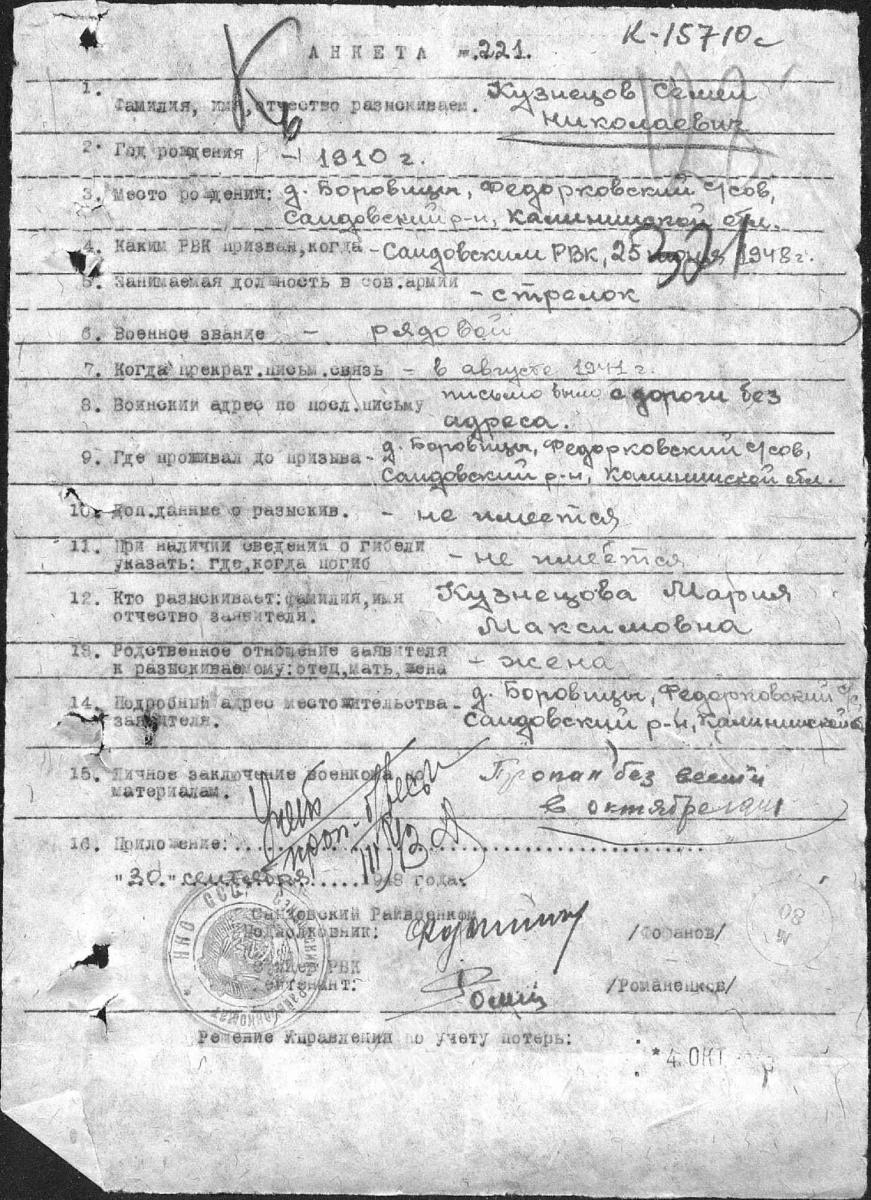 К-15710с
АНКЕТА №.221.
1. Фамилия, имя, отчество разыскиваем. Кузнецов Семен
Николаевич
2. Год рождения - 1910 г.
3. Место рождения: д. Боровицы, Федорковский с/сов,
Сандовский р-н, Калининской обл.
4. Каким РВК призван, когда - Сандовским РВК, 25 июня 1948 г.
321
5. Занимаемая должность в сов.армии - стрелок
6. Военное звание - рядовой
7. Когда прекрат.письм.связь - в августе 1941 г.
8. Воинский адрес по посл.письму письмо было с дороги без
адреса.
9. Где проживал до призыва - д. Боровицы, Федорковский с/сов,
Сандовский р-н, Калининской обл.
10. Доп.данные о разыскив. - не имеется
11. При наличии сведения о гибели
указать: где, когда погиб - не имеется
12. Кто разыскивает: фамилия, имя
отчество заявителя. Кузнецова Мария
Максимовна
13. Родственное отношение заявителя
к разыскиваемому: отец, мать, жена - жена
14. Подробный адрес местожительства
заявителя. - д. Боровицы, Федорковский с/с,
Сандовский р-н, Калининской
15. Личное заключение военкома по
материалам. Пропал без вести
в октябре 1941
16. Приложение:
"30" сентября 1948 года.
Сандовский Райвоенком
Подполковник: /Фофанов/
РВК
Лейтенант: /Романенков/
Решение Управления по учету потерь:
* 4. ОКТ